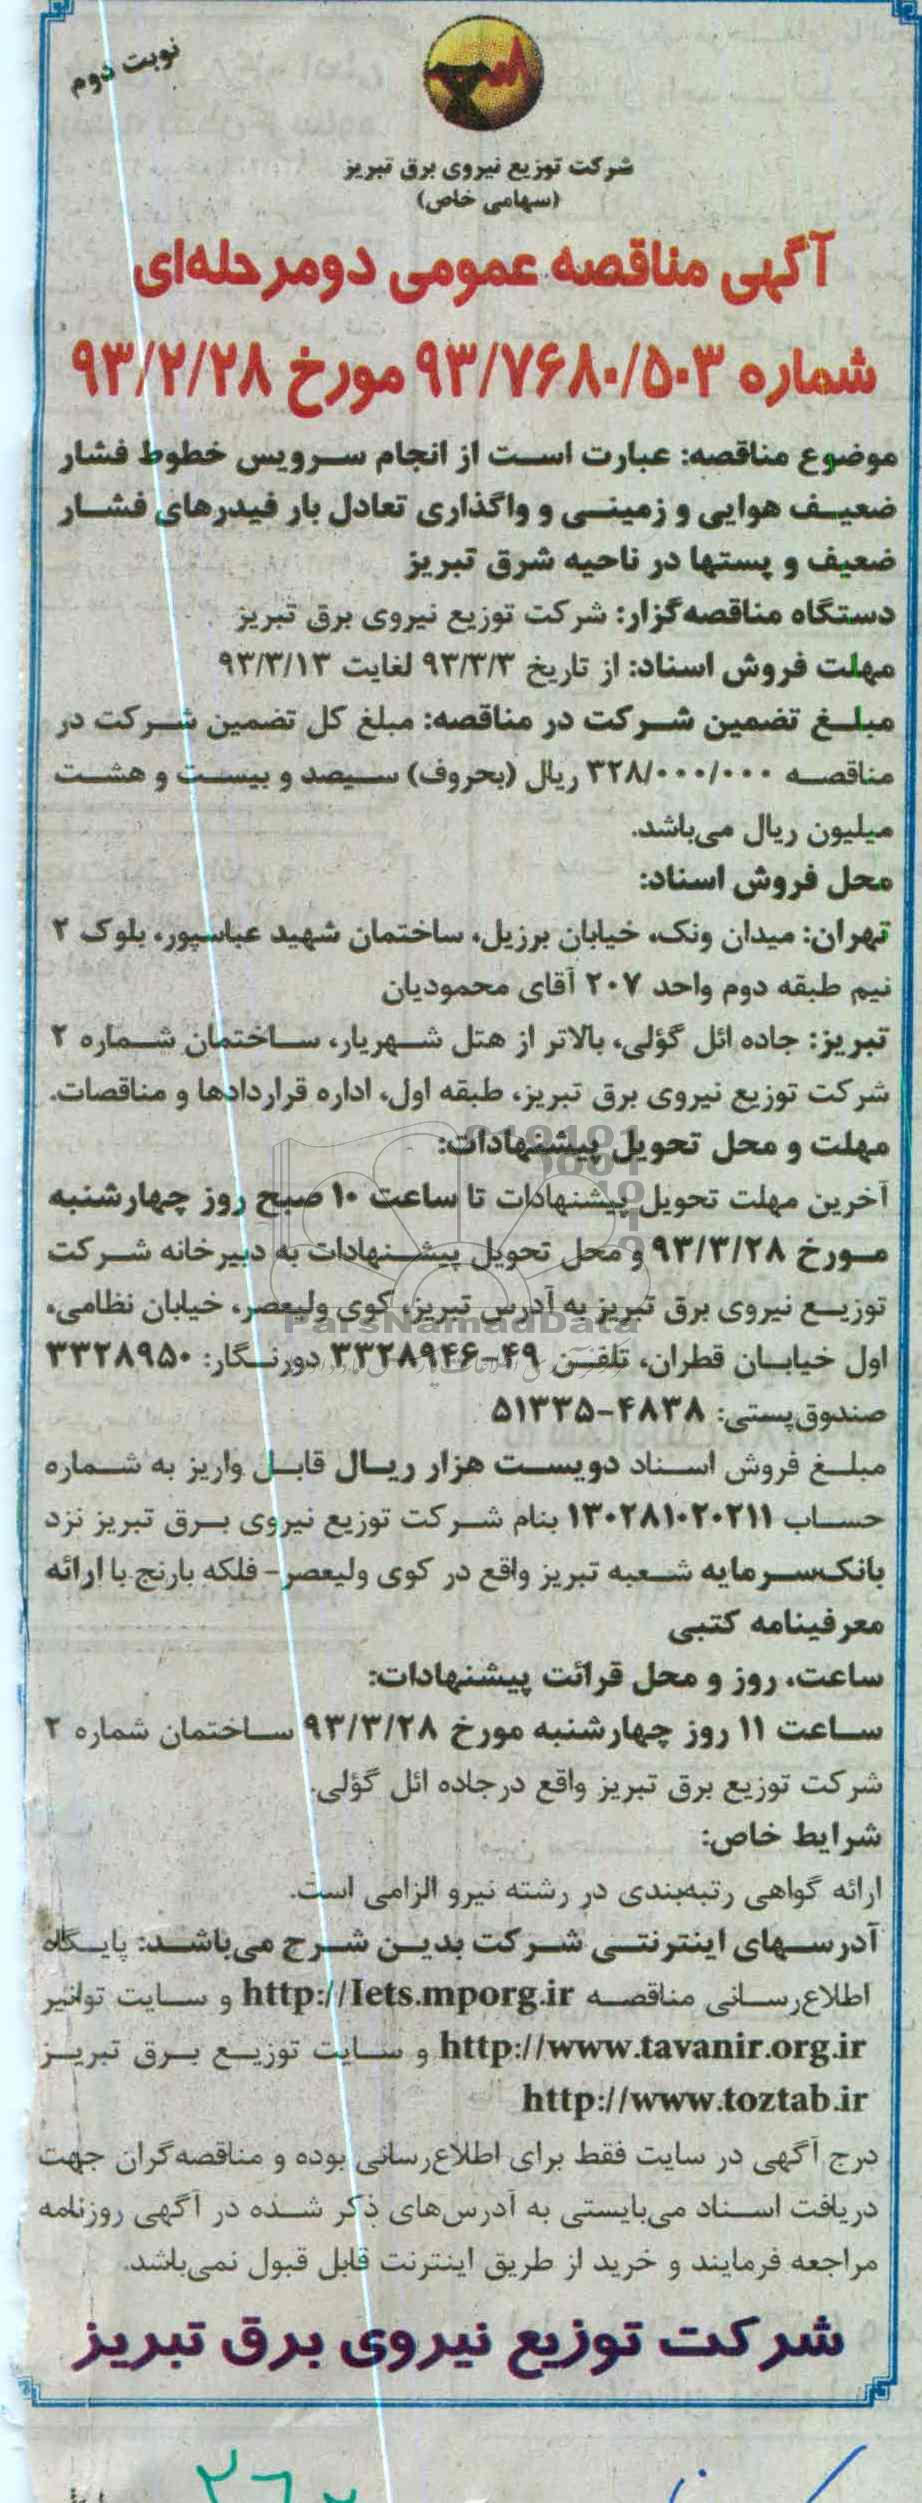 نوبت دوم
شرکت توزیع نیروی برق تبریز
(سهامی خاص)
آگهی مناقصه عمومی دومرحله‌ای
شماره ۹۳/۷۶۸۰/۵۰۳ مورخ ۹۳/۲/۲۸
موضوع مناقصه: عبارت است از انجام سرویس خطوط فشار
ضعیف هوایی و زمینی و واگذاری تعادل بار فیدرهای فشار
ضعیف و پستها در ناحیه شرق تبریز
دستگاه مناقصه‌گزار: شرکت توزیع نیروی برق تبریز
مهلت فروش اسناد: از تاریخ ۹۳/۳/۳ لغایت ۹۳/۳/۱۳
مبلغ تضمین شرکت در مناقصه: مبلغ کل تضمین شرکت در
مناقصه ۳۲۸/۰۰۰/۰۰۰ ریال (بحروف) سیصد و بیست و هشت
میلیون ریال می‌باشد.
محل فروش اسناد:
تهران: میدان ونک، خیابان برزیل، ساختمان شهید عباسپور، بلوک ۲
نیم طبقه دوم واحد ۲۰۷ آقای محمودیان
تبریز: جاده ائل گؤلی، بالاتر از هتل شهریار، ساختمان شماره ۲
شرکت توزیع نیروی برق تبریز، طبقه اول، اداره قراردادها و مناقصات.
مهلت و محل تحویل پیشنهادات:
آخرین مهلت تحویل پیشنهادات تا ساعت ۱۰ صبح روز چهارشنبه
مورخ ۹۳/۳/۲۸ و محل تحویل پیشنهادات به دبیرخانه شرکت
توزیع نیروی برق تبریز به آدرس تبریز، کوی ولیعصر، خیابان نظامی،
ParsNamadData
اول خیابان قطران، تلفن ۴۹-۳۳۲۸۹۴۶ دورنگار: ۳۳۲۸۹۵۰
صندوق‌پستی: ۴۸۳۸-۵۱۳۳۵
مبلغ فروش اسناد دویست هزار ریال قابل واریز به شماره
حساب ۱۳۰۲۸۱۰۲۰۲۱۱ بنام شرکت توزیع نیروی برق تبریز نزد
بانک‌سرمایه شعبه تبریز واقع در کوی ولیعصر- فلکه بارنج با ارائه
معرفینامه کتبی
ساعت، روز و محل قرائت پیشنهادات:
ساعت ۱۱ روز چهارشنبه مورخ ۹۳/۳/۲۸ ساختمان شماره ۲
شرکت توزیع برق تبریز واقع درجاده ائل گؤلی.
شرایط خاص:
ارائه گواهی رتبه‌بندی در رشته نیرو الزامی است.
آدرسهای اینترنتی شرکت بدین شرح می‌باشد: پایگاه
اطلاع‌رسانی مناقصه http://Iets.mporg.ir و سایت توانیر
http://www.tavanir.org.ir و سایت توزیع برق تبریز
http://www.toztab.ir
درج آگهی در سایت فقط برای اطلاع‌رسانی بوده و مناقصه‌گران جهت
دریافت اسناد می‌بایستی به آدرس‌های ذکر شده در آگهی روزنامه
مراجعه فرمایند و خرید از طریق اینترنت قابل قبول نمی‌باشد.
شرکت توزیع نیروی برق تبریز